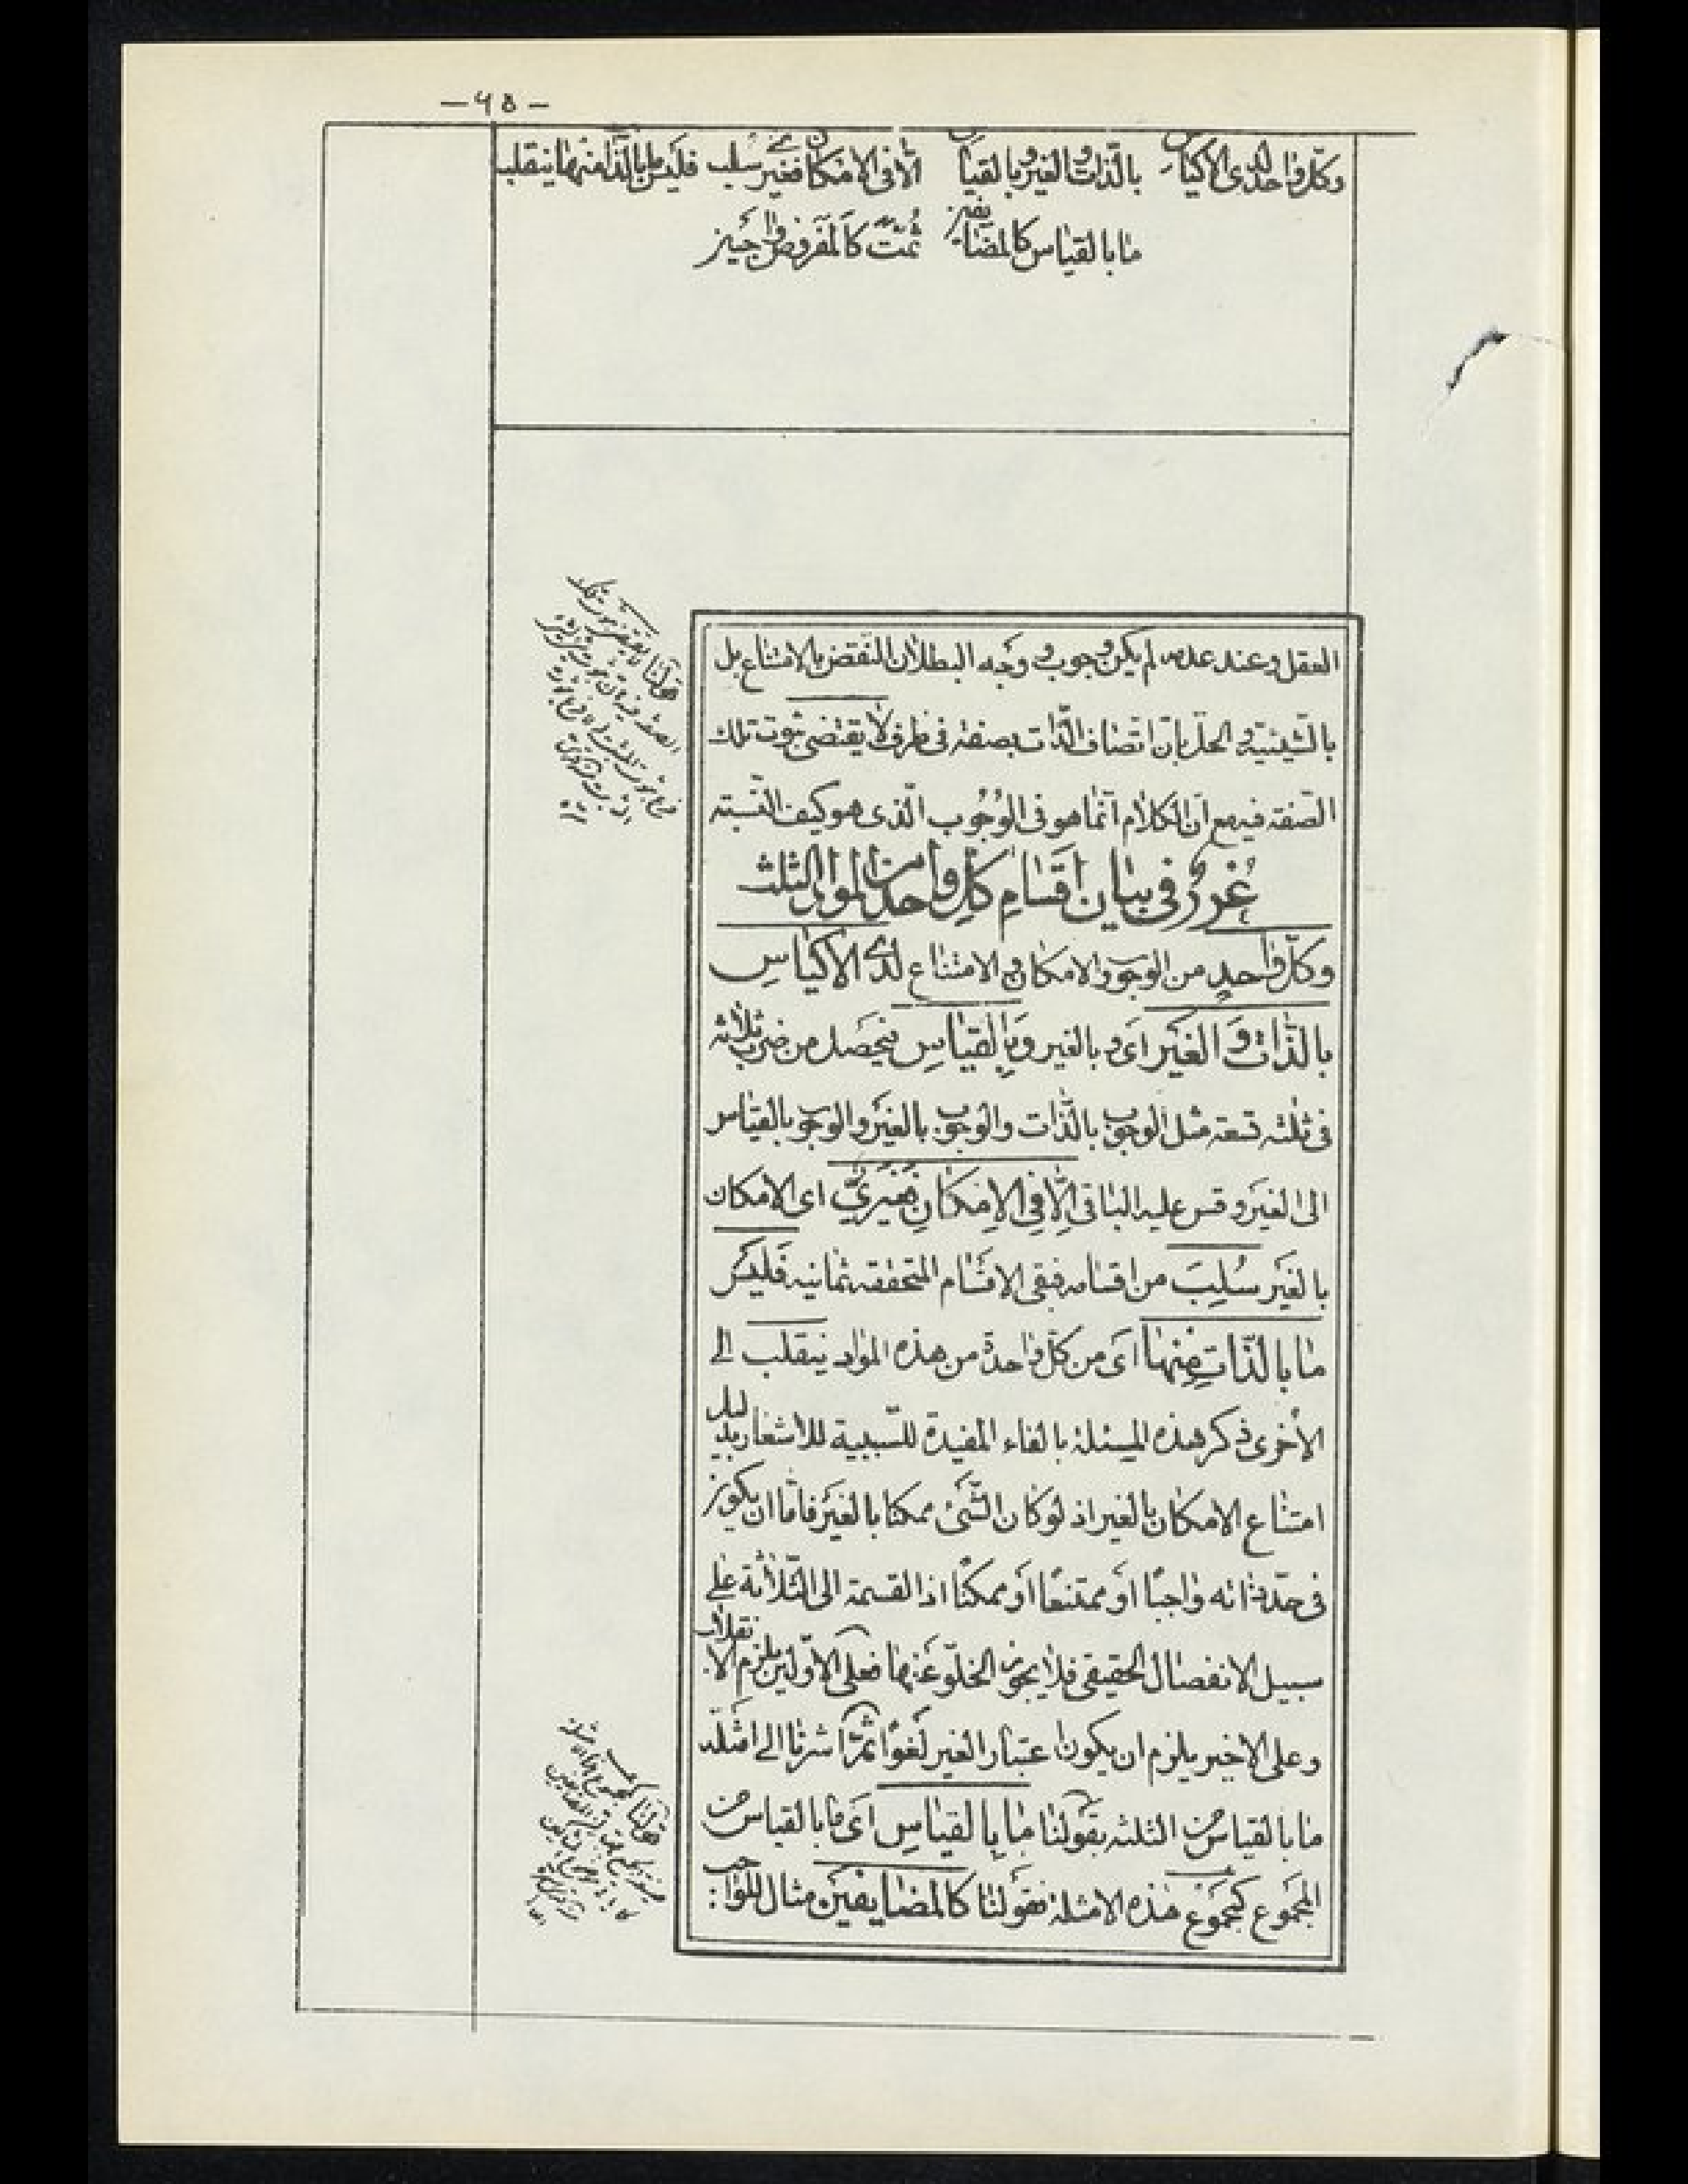 — ٦٥ —
وكلّ واحد لدى الاكياس بالذّات والغير وبالقياس الّا فى الامكان فغيرىّ سلب فليس ما بالذّات منها ينقلب
ما بالقياس كالمضايفين ثمّت كالمفروض واجبين
العقل وعند عدمه لم يكن وجوب ووجه البطلان النّقض بالامتناع بل
بالشّيئيّة والحلّ بانّ اتّصاف الذّات بصفة فى ظرف لا يقتضى ثبوت تلك
الصّفة فيه مع انّ الكلام انّما هو فى الوُجُوب الّذى هو كيف النّسبة
غُررٌ فى بيان اقسامِ كلّ واحد من الموادّ الثلث
وكلّ واحدٍ من الوجوب والامكان والامتناع لدى الاكياسِ
بالذّات وَ الغَيْر اى وبالغير وَبِالقياسِ فيحصل من ضرب ثلاثة
فى ثلثة تسعة مثل الوجوب بالذّات والوجوب بالغير والوجوب بالقياس
الى الغير وقس عليه الباقى اِلّا فِى الاِمْكانِ فَغَيْرىٌّ اى الامكان
بالغير سُلِبَ من اقسامه فبقى الاقسام المتحققة ثمانية فَلَيْسَ
ما بالذّاتِ مِنْها اى من كلّ واحدة من هذه الموادّ ينقلب الى
الاخرى ذكر هذه المسئلة بالفاء المفيدة للسّببية للاشعار بدليل
امتناع الامكان بالغير اذ لو كان الشّىء ممكنا بالغير فامّا ان يكون
فى حدّ ذاته واجبًا او ممتنعًا او ممكنًا اذ القسمة الى الثّلاثة على
سبيل الانفصال الحقيقى فلا يجوز الخلوّ عنها فعلى الاوّلين يلزم الانقلاب
وعلى الاخير يلزم ان يكون اعتبار الغير لغوًا ثمّ اشرنا الى امثلة
ما بالقياس من الثلثة بقولنا ما بِالقياسِ اى ما بالقياس من
المجموع كمجموع هذه الامثلة فقولنا كالمضايفين مثال للواجب